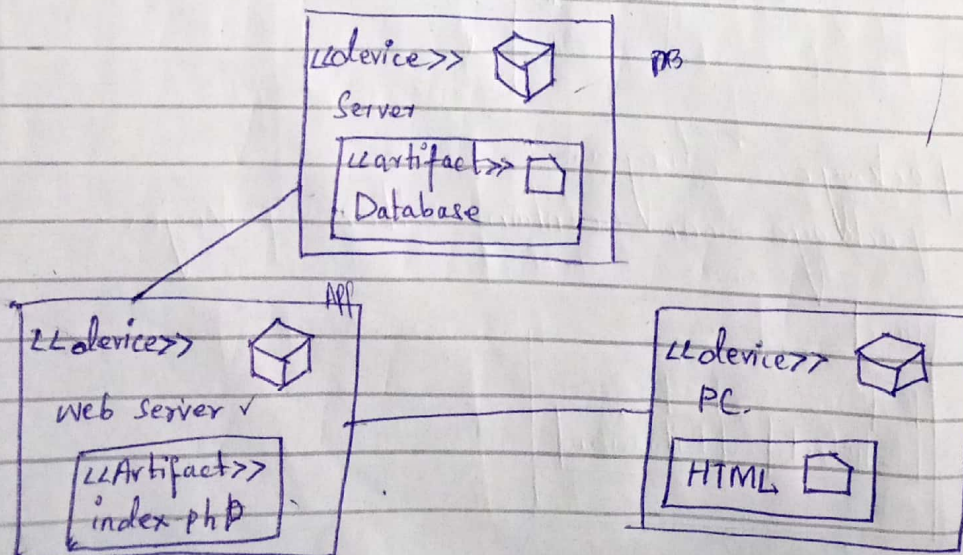 <<device>>
Server
<<artifact>>
Database
DB
APP
<<device>>
Web Server ✓
<<Artifact>>
index.php
<<device>>
PC.
HTML